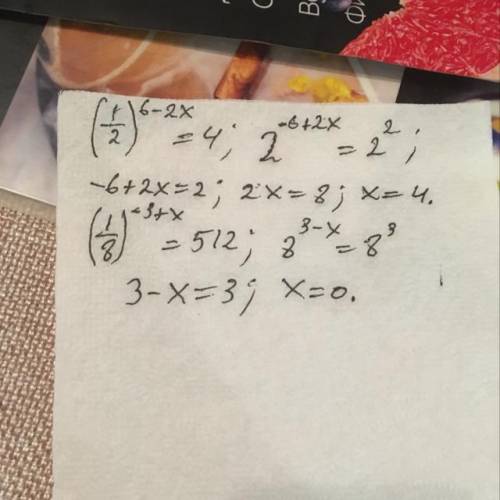 (1/2)^(6-2x) = 4; 2^(-6+2x) = 2^2;
-6+2x=2; 2x=8; x=4.
(1/8)^(-3+x) = 512; 8^(3-x) = 8^3
3-x=3; x=0.